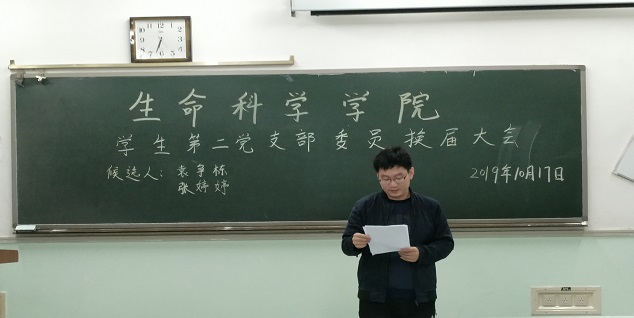 生命科学学院
学生第二党支部委员换届大会
候选人：袁争栋
张婷婷
2019年10月17日